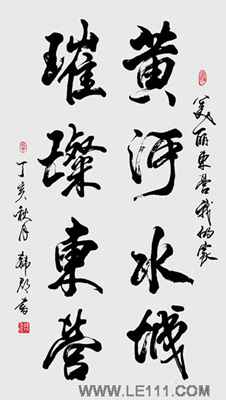 美丽东营我的家
黄河水城
璀璨東营
丁亥秋月 韩
WWW.LE111.COM